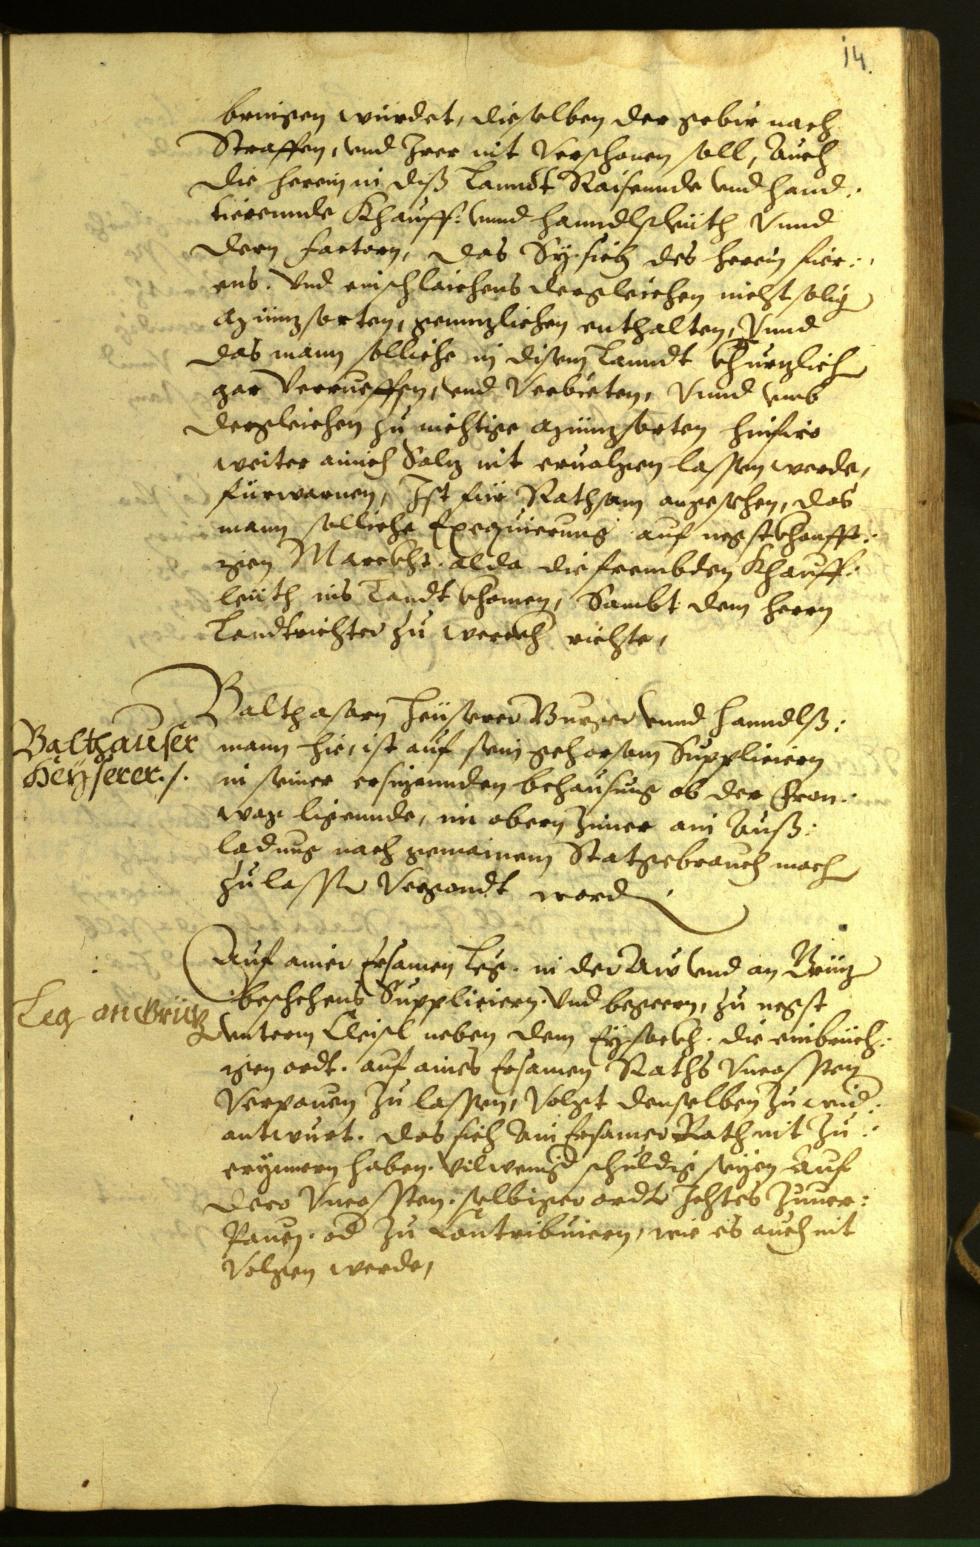 14.
bringen würdet, dieselben der gebir nach
Straffen, vnd Irer nit verschonen soll, Auch
die herein in diß Lanndt Raisennde vnd hand:
tierennde Khauff: vnnd hanndlsleüth Vnnd
dern factorn, das Sy sich des herein fier:
ens. Vnd einschlaichens dergleichen nichtsolig
Münzsorten, gennzlichen enthalten, Vnnd
das mann solliche in disem Lanndt khurzlich
gar Verrueffen, vnd Verbieten, Vnnd vmb
dergleichen zu nichtige Münzsorten hinfiro
weiter ainich Salz nit eruolgen lassen werde,
fürwarnen, Ist für Rathsam angesehen, das
mann solliche Exequierung auf negstkhonfft:
igen Marckht. alda die frembden Khauff:
leüth ins Landt khomen, Sambt dem herrn
Landtrichter zu werckh richte,
Balthasarn heüserer Burger vnnd hanndlß:
mann hie, ist auf sein gehorsam Suppliciern
in seiner ersizennden behausung ob der Fron:
wag ligennde, im obern Zimer ain Auß:
ladung nach gemainem Statgebrauch mach
zu lassen Vergondt word
Balthauser
Heyserer./.
Auf ainer Ersamen Leg. in der Aw vnd an Grüz
beschehens Suppliciern. Vnd begeern, zu negst
vnterm Cleisl neben dem Eysackh. die einbrüch:
igen ordt. auf aines Ersamen Raths Vncossten
Verpauen zu lassen, Volgt denselben zu wid:
antwurt. das sich Ain Ersamer Rath nit zu
erynnern haben. vilweniger schuldig seyen Auf
dero Vncossten. selbiger ordt Ichtes zuuer:
Pauen. od zu Contribuiern, wie es auch nit
Volgen werde,
Leg an Grüz